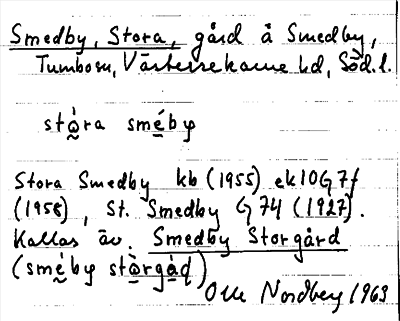 Smedby, Stora, gård å Smedby,
Tumbosn, Västerrekarne hd, Söd. l.
stò̰ra smé̱by
Stora Smedby kb (1955) ek10G7f
(1956), St. Smedby G74 (1927).
Kallas äv. Smedby Storgård
(smé̱by stò̱rgå̱ɖ)
Olle Nordberg 1963